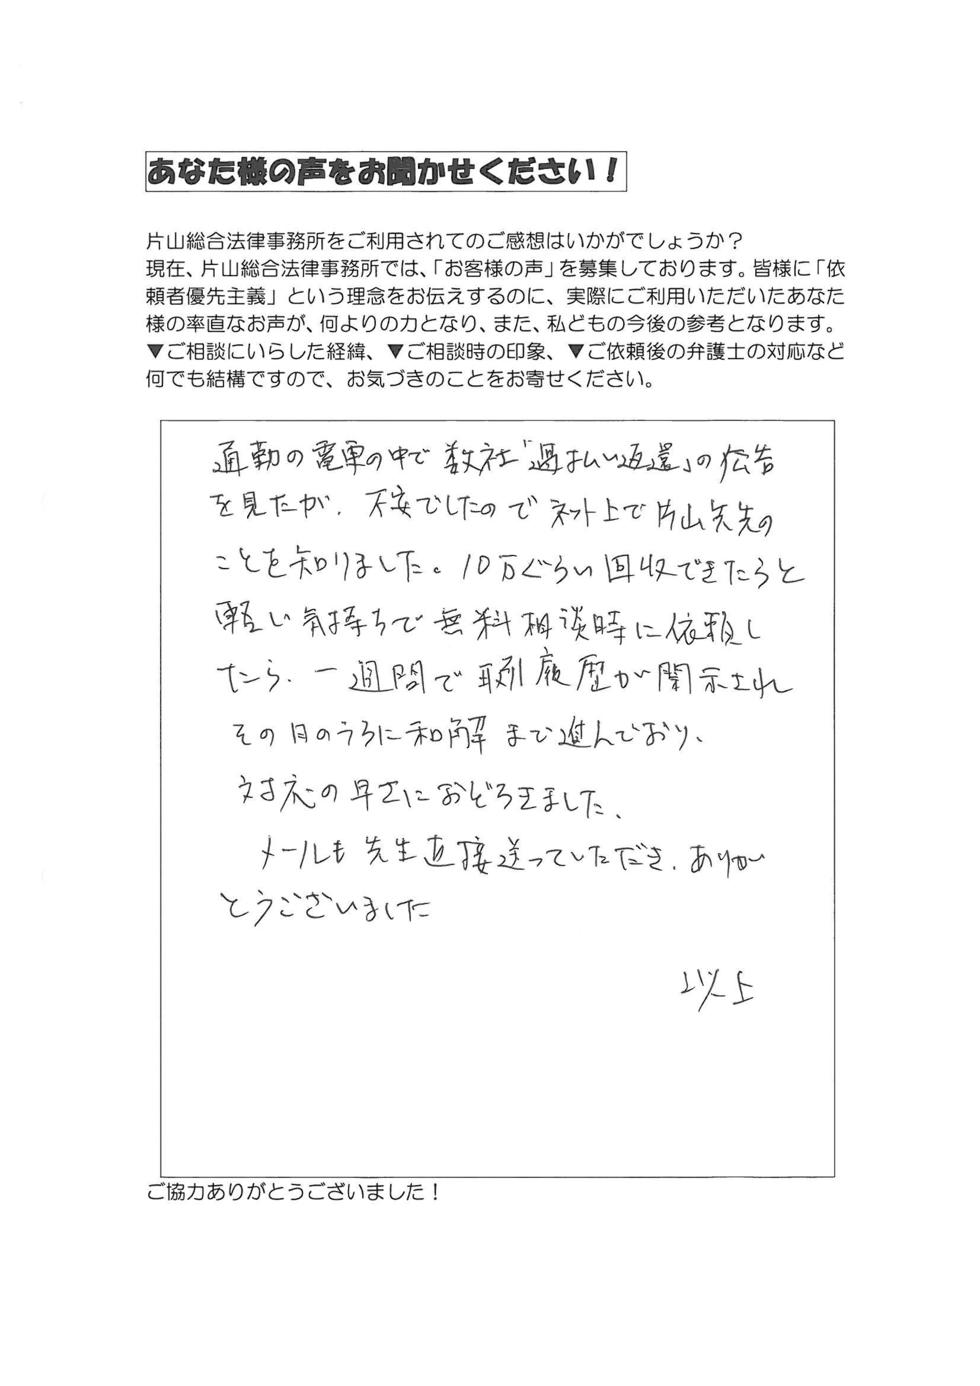 あなた様の声をお聞かせください！
片山総合法律事務所をご利用されてのご感想はいかがでしょうか？
現在、片山総合法律事務所では、「お客様の声」を募集しております。皆様に「依
頼者優先主義」という理念をお伝えするのに、実際にご利用いただいたあなた
様の率直なお声が、何よりの力となり、また、私どもの今後の参考となります。
▼ご相談にいらした経緯、▼ご相談時の印象、▼ご依頼後の弁護士の対応など
何でも結構ですので、お気づきのことをお寄せください。
通勤の電車の中で数社「過払い返還」の広告
を見たが、不安でしたのでネット上で片山先生の
ことを知りました。10万ぐらい回収できたらと
軽い気持ちで無料相談時に依頼し
たら、一週間で取引履歴が開示され
その日のうちに和解まで進んでおり、
対応の早さにおどろきました、
メールも先生直接送っていただき、ありが
とうございました
以上
ご協力ありがとうございました！